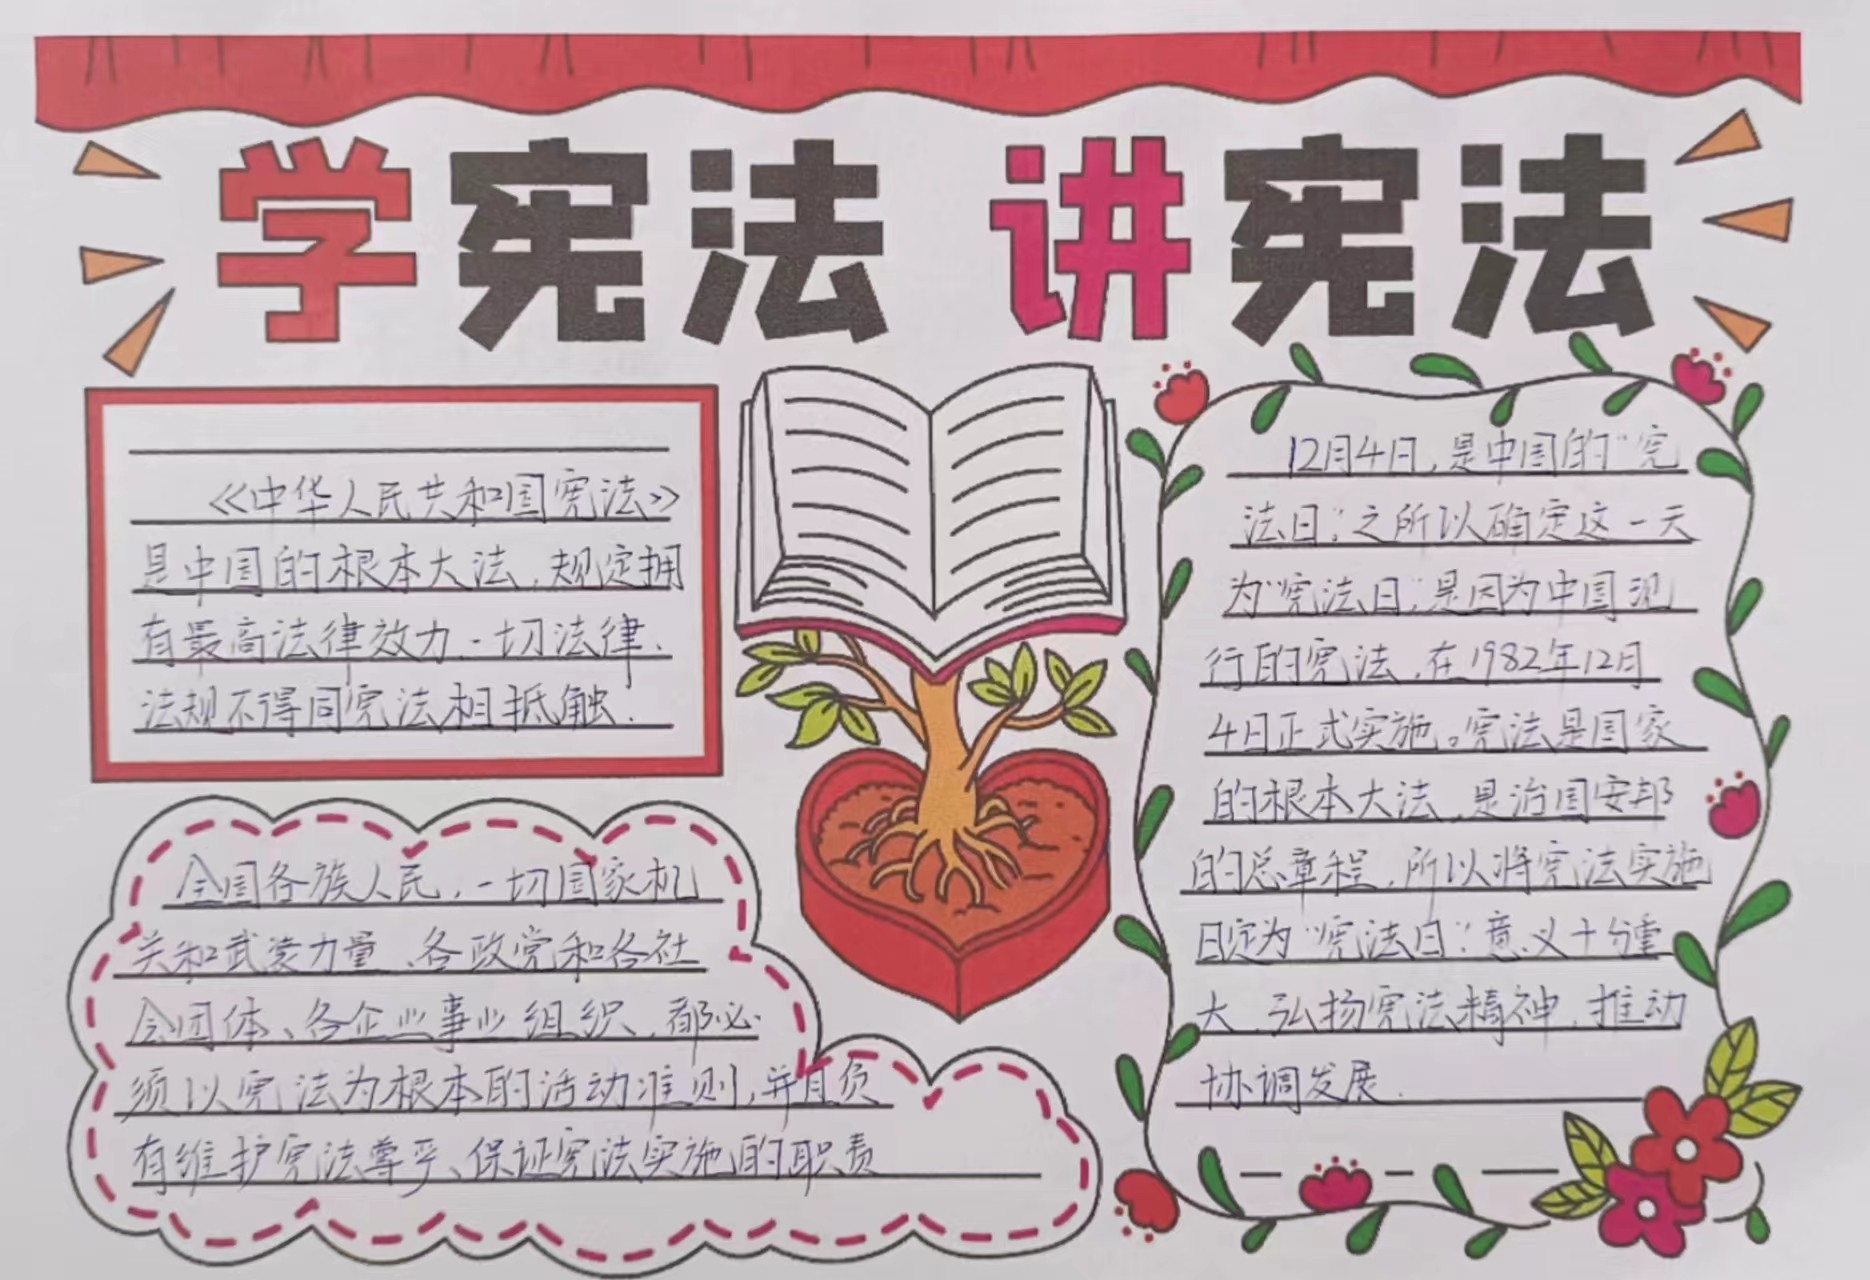 学宪法 讲宪法
《中华人民共和国宪法》
是中国的根本大法,规定拥
有最高法律效力.一切法律、
法规不得同宪法相抵触.
全国各族人民,一切国家机
关和武装力量、各政党和各社
会团体、各企业事业组织,都必
须以宪法为根本的活动准则,并且负
有维护宪法尊严、保证宪法实施的职责
12月4日,是中国的“宪
法日”;之所以确定这一天
为“宪法日”,是因为中国现
行的宪法,在1982年12月
4日正式实施。宪法是国家
的根本大法,是治国安邦
的总章程,所以将宪法实施
日定为“宪法日”;意义十分重
大.弘扬宪法精神,推动
协调发展.